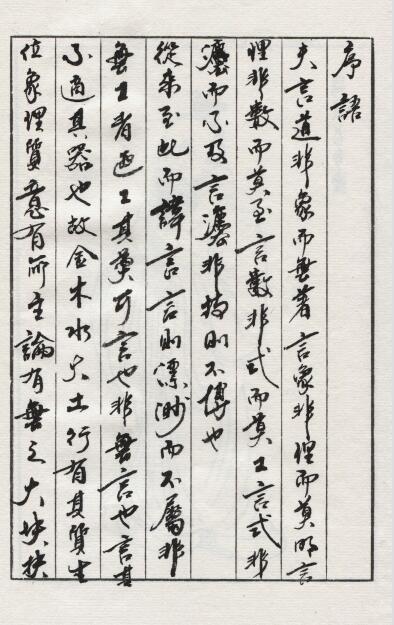 序語
夫言道非象而無著言象非理而莫明言
理非數而莫至言數非式而莫工言式非
而不及言非物則不博也
從來至此而諱言言則漂渺而不屬非
無工者也工其莫可言也非無言也言其
不適其器也故金木水火土行有其質生
位象理質意有所主論有無之大塊